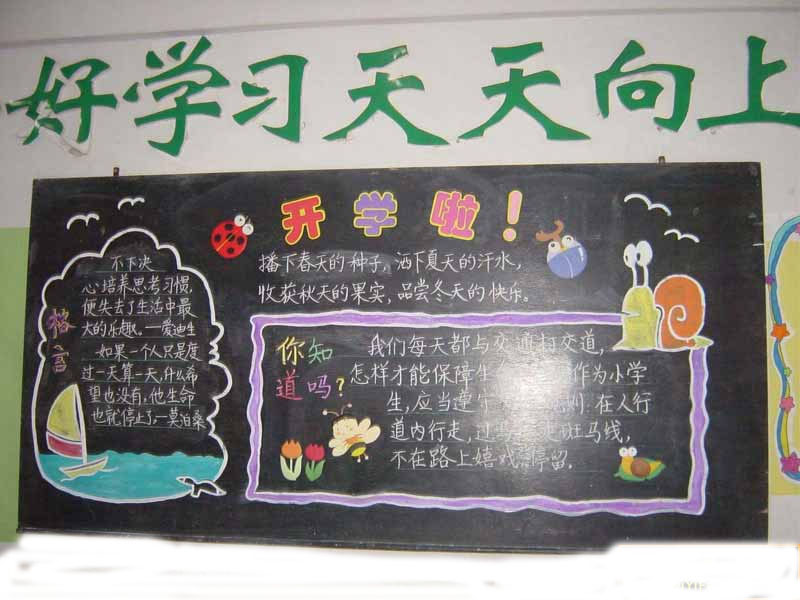 好学习天天向上
开学啦！
播下春天的种子，洒下夏天的汗水，
收获秋天的果实，品尝冬天的快乐。
格言
不下决
心培养思考习惯，
便失去了生活中最
大的乐趣。—爱迪生
如果一个人只是度
过一天算一天，什么希
望也没有，他生命
也就停止了。—莫泊桑
你知
道吗？
我们每天都与交通打交道，
怎样才能保障生 作为小学
生，应当遵守 则：在人行
道内行走，过 走斑马线，
不在路上嬉戏 停留。